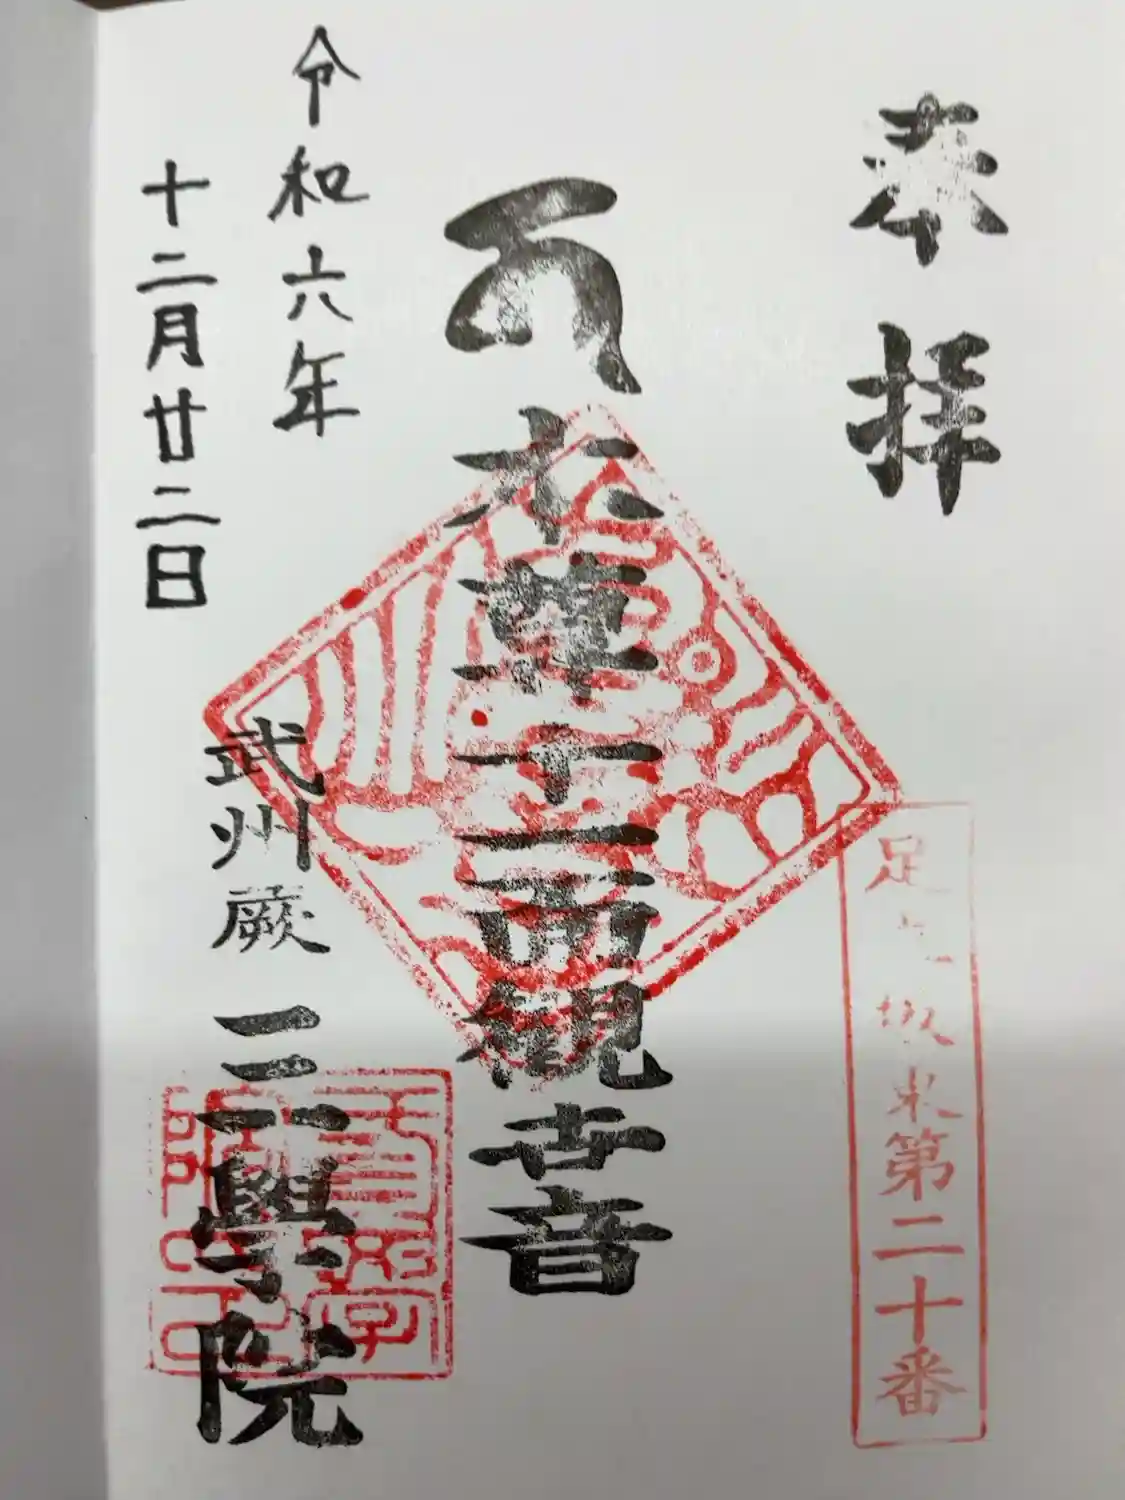 奉拝
足立坂東第二十番
本尊十一面観世音
令和六年
十二月廿二日
武州蕨 三學院